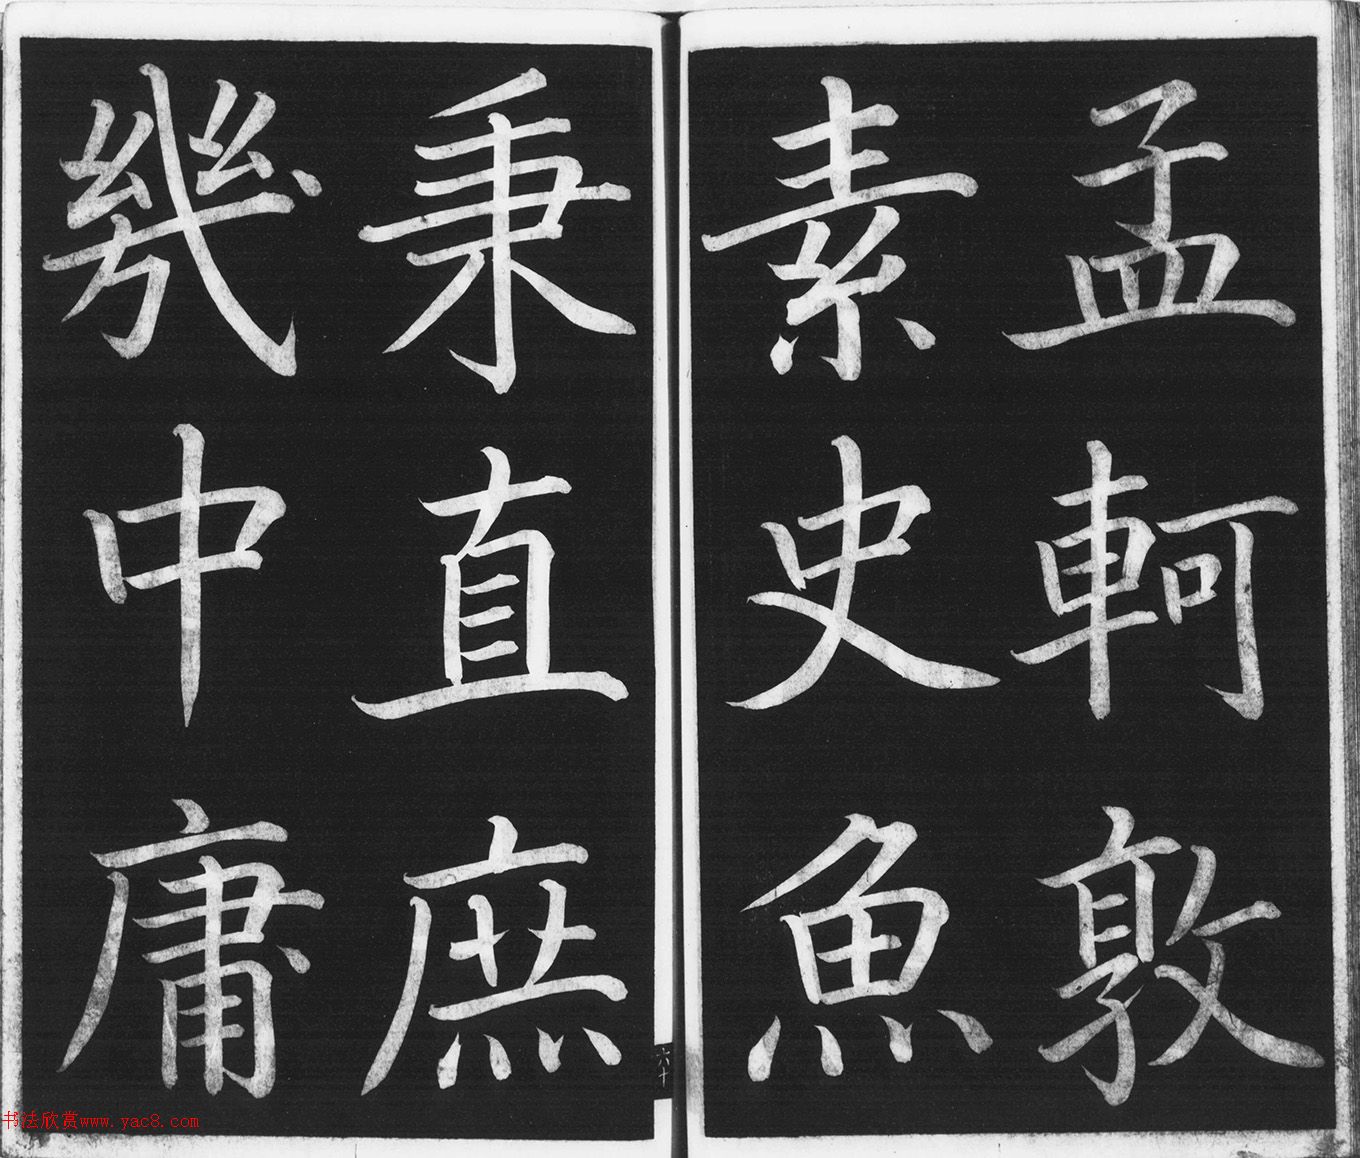 孟軻敦
素史魚
秉直庶
幾中庸
六十
书法欣赏www.yac8.com